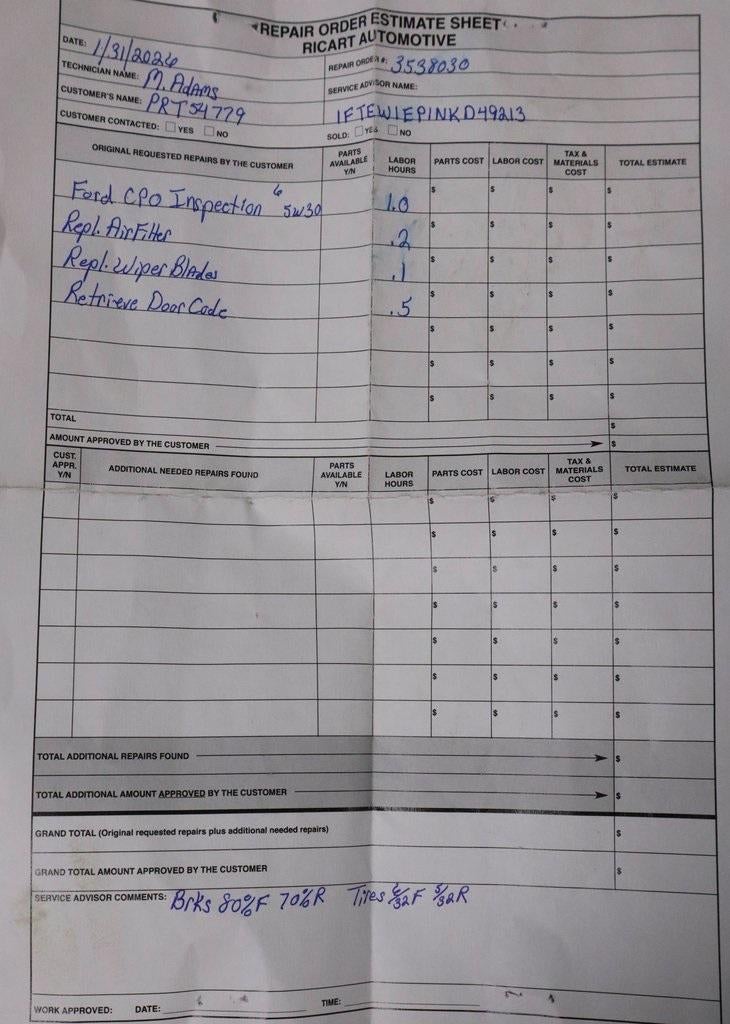 REPAIR ORDER ESTIMATE SHEET
RICART AUTOMOTIVE
DATE: 1/31/2026
REPAIR ORDER #: 3538030
TECHNICIAN NAME: M. Adams
SERVICE ADVISOR NAME:
CUSTOMER'S NAME: PRT54779
1FTEW1EP1NKD49213
CUSTOMER CONTACTED: YES NO
SOLD: YES NO
ORIGINAL REQUESTED REPAIRS BY THE CUSTOMER PARTS AVAILABLE Y/N LABOR HOURS PARTS COST LABOR COST TAX & MATERIALS COST TOTAL ESTIMATE
Ford CPO Inspection 6 5w30 1.0 $ $ $ $
Repl. Air Filter .2 $ $ $ $
Repl. Wiper Blades .1 $ $ $ $
Retrieve Door Code .5 $ $ $ $
$ $ $ $
$ $ $ $
$ $ $ $
TOTAL $
AMOUNT APPROVED BY THE CUSTOMER $
CUST. APPR. Y/N ADDITIONAL NEEDED REPAIRS FOUND PARTS AVAILABLE Y/N LABOR HOURS PARTS COST LABOR COST TAX & MATERIALS COST TOTAL ESTIMATE
$ $ $ $
$ $ $ $
$ $ $ $
$ $ $ $
$ $ $ $
$ $ $ $
$ $ $ $
TOTAL ADDITIONAL REPAIRS FOUND $
TOTAL ADDITIONAL AMOUNT APPROVED BY THE CUSTOMER $
GRAND TOTAL (Original requested repairs plus additional needed repairs) $
GRAND TOTAL AMOUNT APPROVED BY THE CUSTOMER $
SERVICE ADVISOR COMMENTS: Brks 80% F 70% R Tires 6/32 F 5/32 R
WORK APPROVED: DATE: TIME: